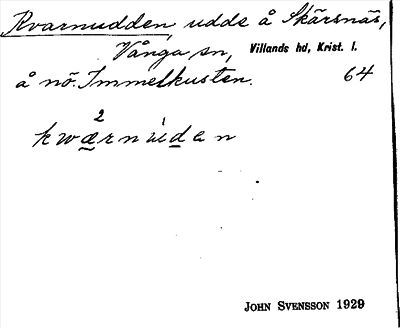 Kvarnudden, udde å Skärsnäs,
Vånga sn, Villands hd, Krist. l.
å nö. Immelkusten. 64
2
kwærnúden
JOHN SVENSSON 1929